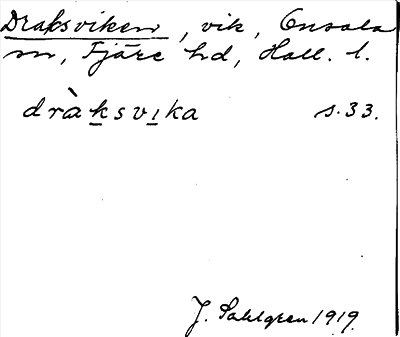 Draksviken, vik, Onsala
sn, Fjäre hd, Hall. l.
dràksvika s. 33.
J. Sahlgren 1919